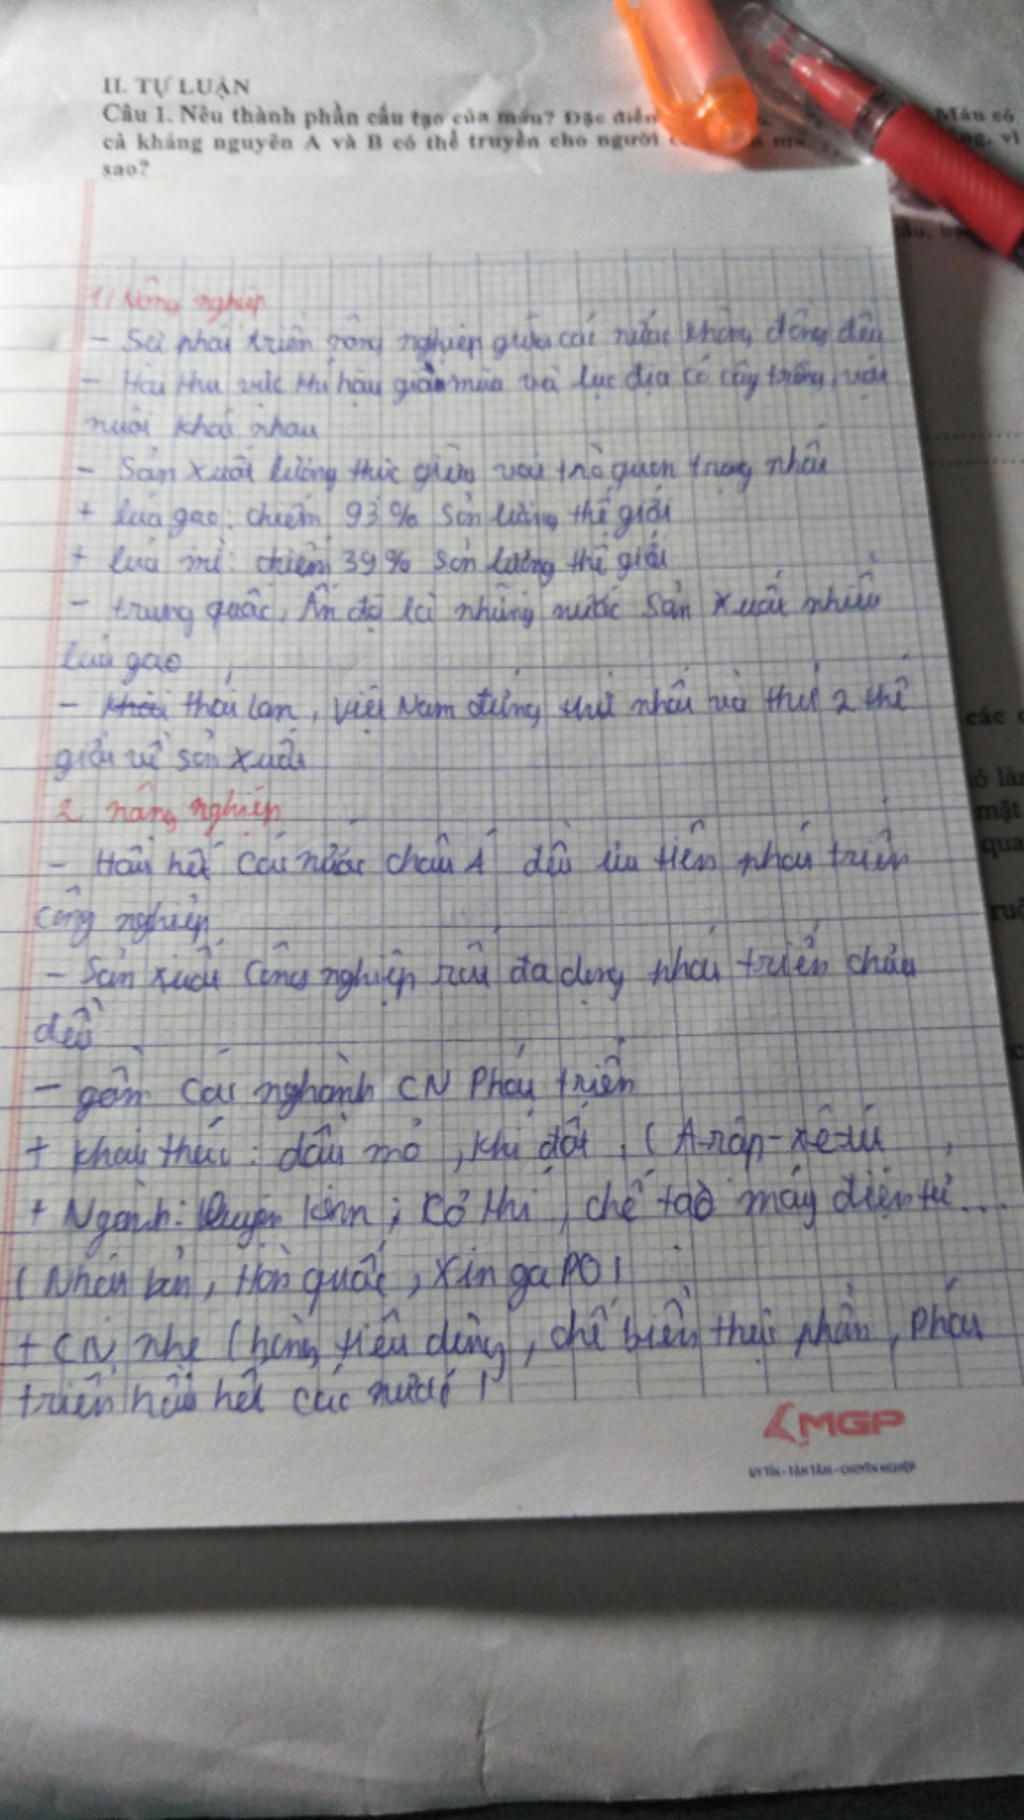 II. TỰ LUẬN
Câu 1. Nêu thành phần cấu tạo của máu? Đặc điểm Máu có
cả kháng nguyên A và B có thể truyền cho người vì
sao?
1/ Nông nghiệp
- Sự phát triển nông nghiệp giữa các nước không đồng đều
- Hai khu vực khí hậu gió mùa và lục địa có cây trồng, vật
nuôi khác nhau
- Sản xuất lương thực giữ vai trò quan trọng nhất
+ lúa gạo: chiếm 93% sản lượng thế giới
+ lúa mì: chiếm 39% sản lượng thế giới
- trung quốc, Ấn độ là những nước sản xuất nhiều
lúa gạo
- thái lan, việt Nam đứng thứ nhất và thứ 2 thế
giới về sản xuất
2 nông nghiệp
- Hầu hết các nước châu Á đều ưu tiên phát triển
công nghiệp
- Sản xuất công nghiệp rất đa dạng phát triển chưa
đều
- gồm các nghành CN Phát triển
+ khai thác: dầu mỏ, khí đốt, (A-rập-xê-út
+ Ngành: luyện kim; cơ khí, chế tạo máy điện tử...
(Nhật bản, Hàn quốc, Xin ga PO)
+ CN nhẹ (hàng tiêu dùng, chế biến thực phẩn, Phát
triển hầu hết các nước)
MGP
UY TÍN - TẬN TÂM - CHUYÊN NGHIỆP
các
mặt
qua